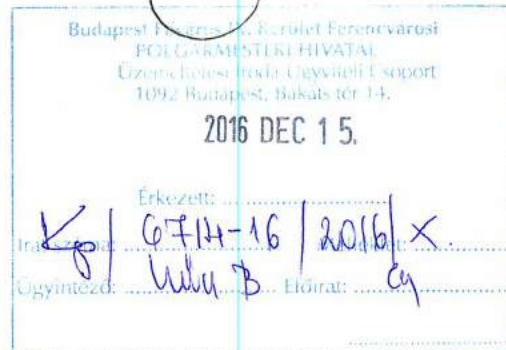 Budapest Főváros IX. Kerület Ferencvárosi
POLGÁRMESTERI HIVATAL
Üzemeltetési Iroda Ügyviteli Csoport
1092 Budapest, Bakáts tér 14.
2016 DEC 15.
Érkezett: ....................
Kp/ 6714-16 / 2016 / X.
Ügyintéző: B Előirat: